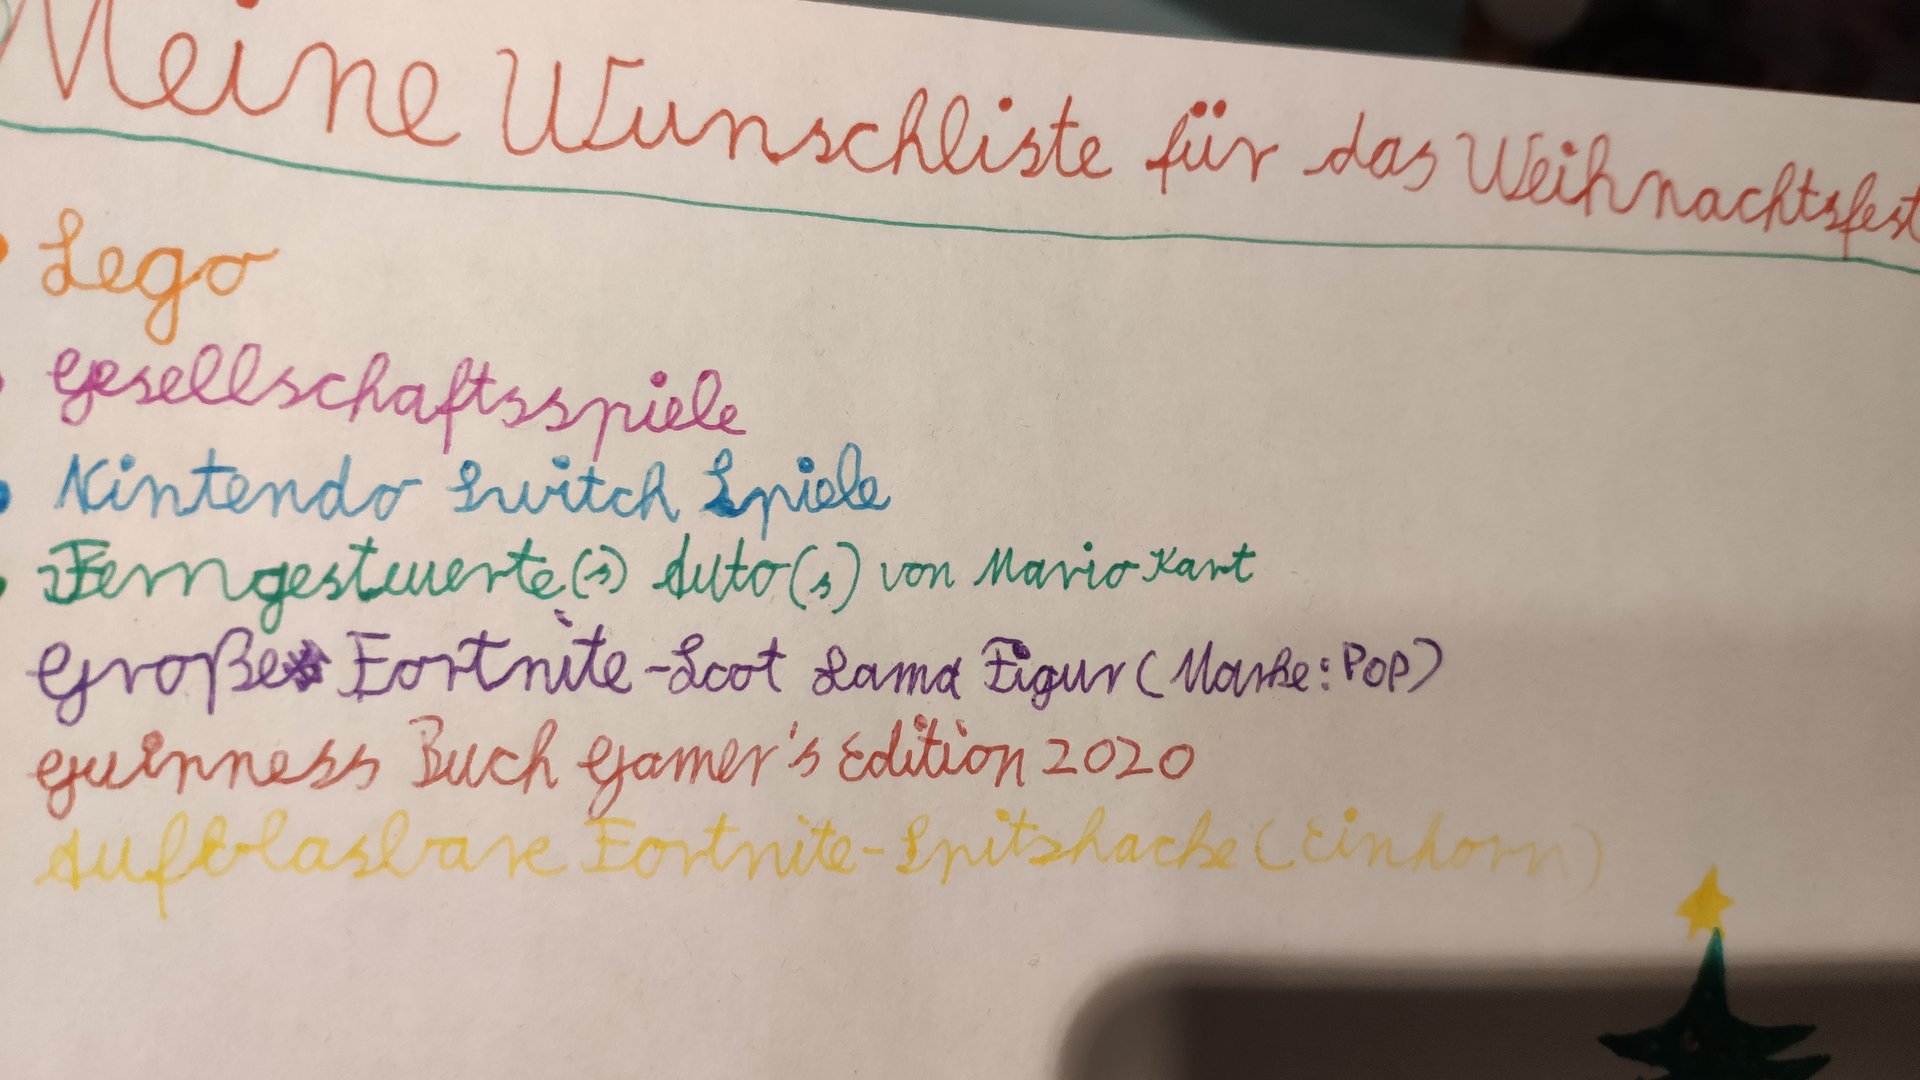 Meine Wunschliste für das Weihnachtsfest
Lego
Gesellschaftsspiele
Nintendo Switch Spiele
Ferngesteuerte(s) Auto(s) von Mario Kart
Große Fortnite-Loot Lama Figur (Marke: POP)
Guinness Buch Gamer's Edition 2020
Aufblasbare Fortnite-Spitzhacke (Einhorn)